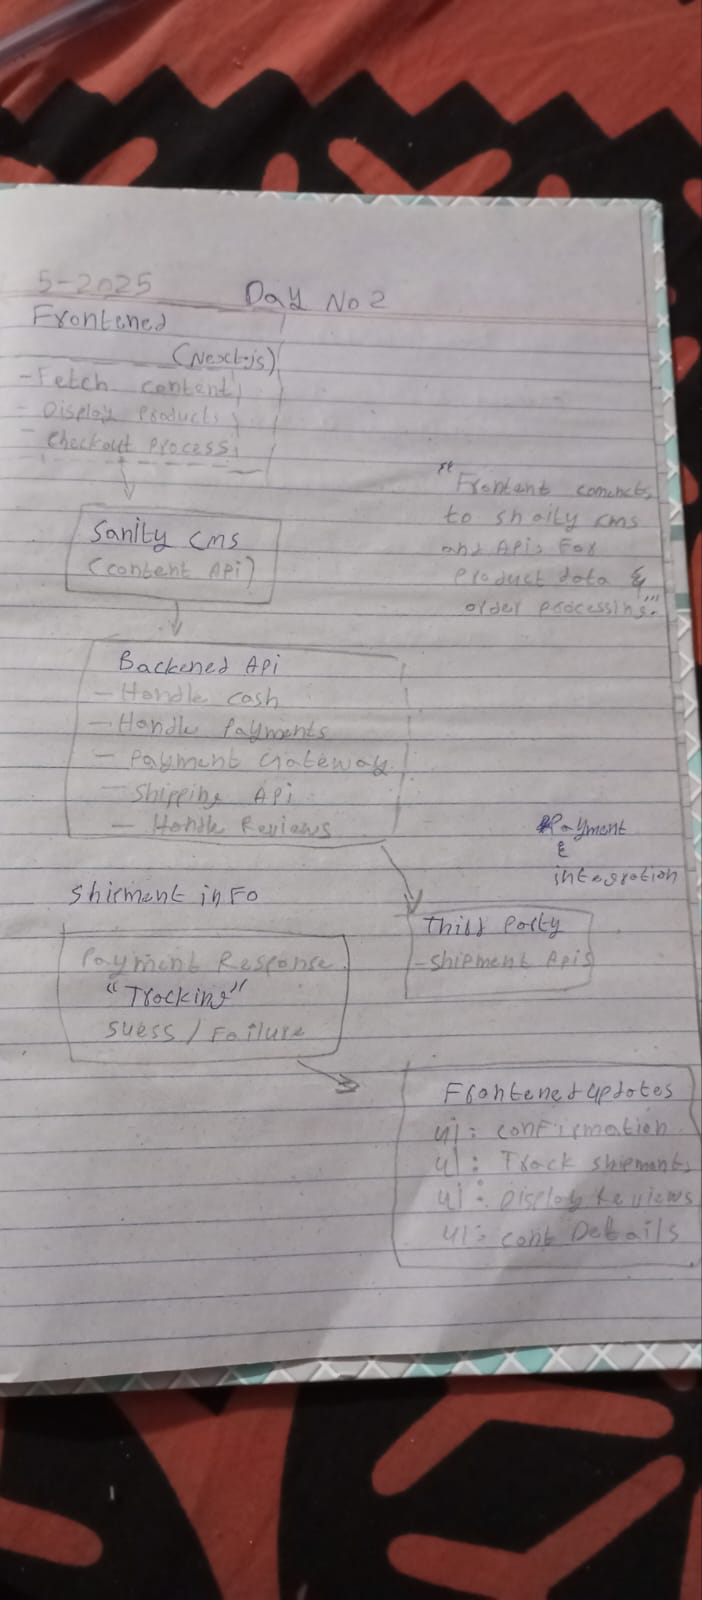 5-2025 Day No 2
Frontened
(Next.js)
- Fetch content
- Display Products
- Checkout process
"Frontent connects
to snaity cms
and APIs For
product data &
order processing."
Sanity CMS
(content Api)
Backened Api
- Handle cash
- Handle Payments
- Payment Gateway
- Shipping Api
- Handle Reviews
Payment
&
integration
Shipment inFo
Third Party
- Shipment Apis
Payment Response
"Tracking"
suess / Failure
Frontened updates
ui: conFirmation
ui: Track shipments
ui: Display Reviews
ui: cont Details